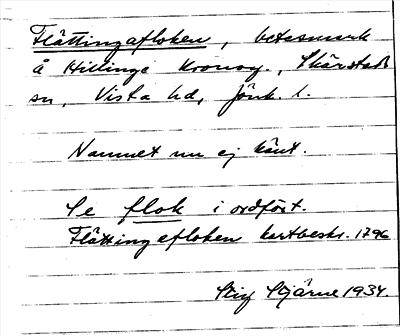 Flättingafloken, betesmark
å Hillinge kronog., Skärstads
sn, Vista hd, Jönk. l.
Namnet nu ej känt.
Se flok i ordfört.
Flättingafloken kartbeskr. 1796
Stig Stjärne 1934.